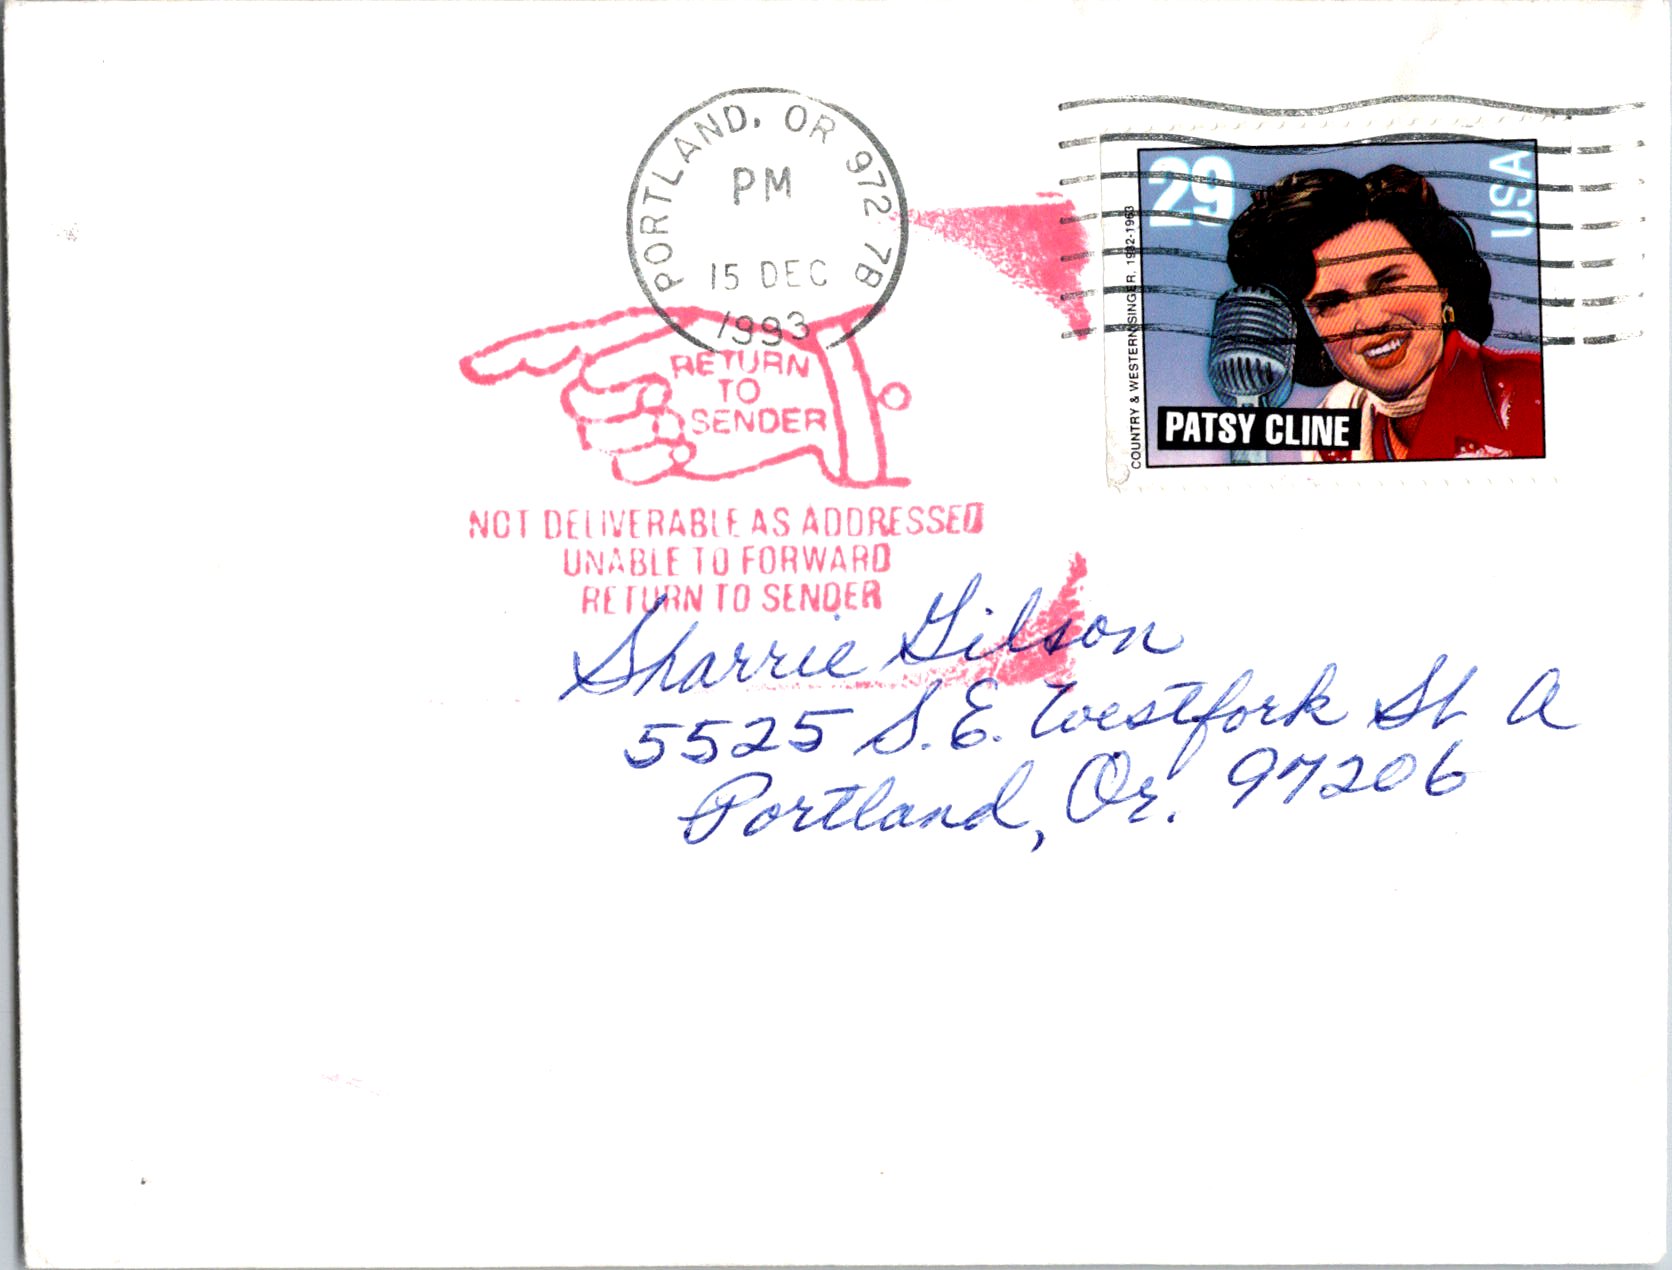 PORTLAND, OR 972 7B
PM
15 DEC
1993
29
USA
COUNTRY & WESTERN SINGER, 1932-1963
PATSY CLINE
RETURN
TO
SENDER
NOT DELIVERABLE AS ADDRESSED
UNABLE TO FORWARD
RETURN TO SENDER
Sharrie Gilson
5525 S.E. Westfork St A
Portland, Or. 97206